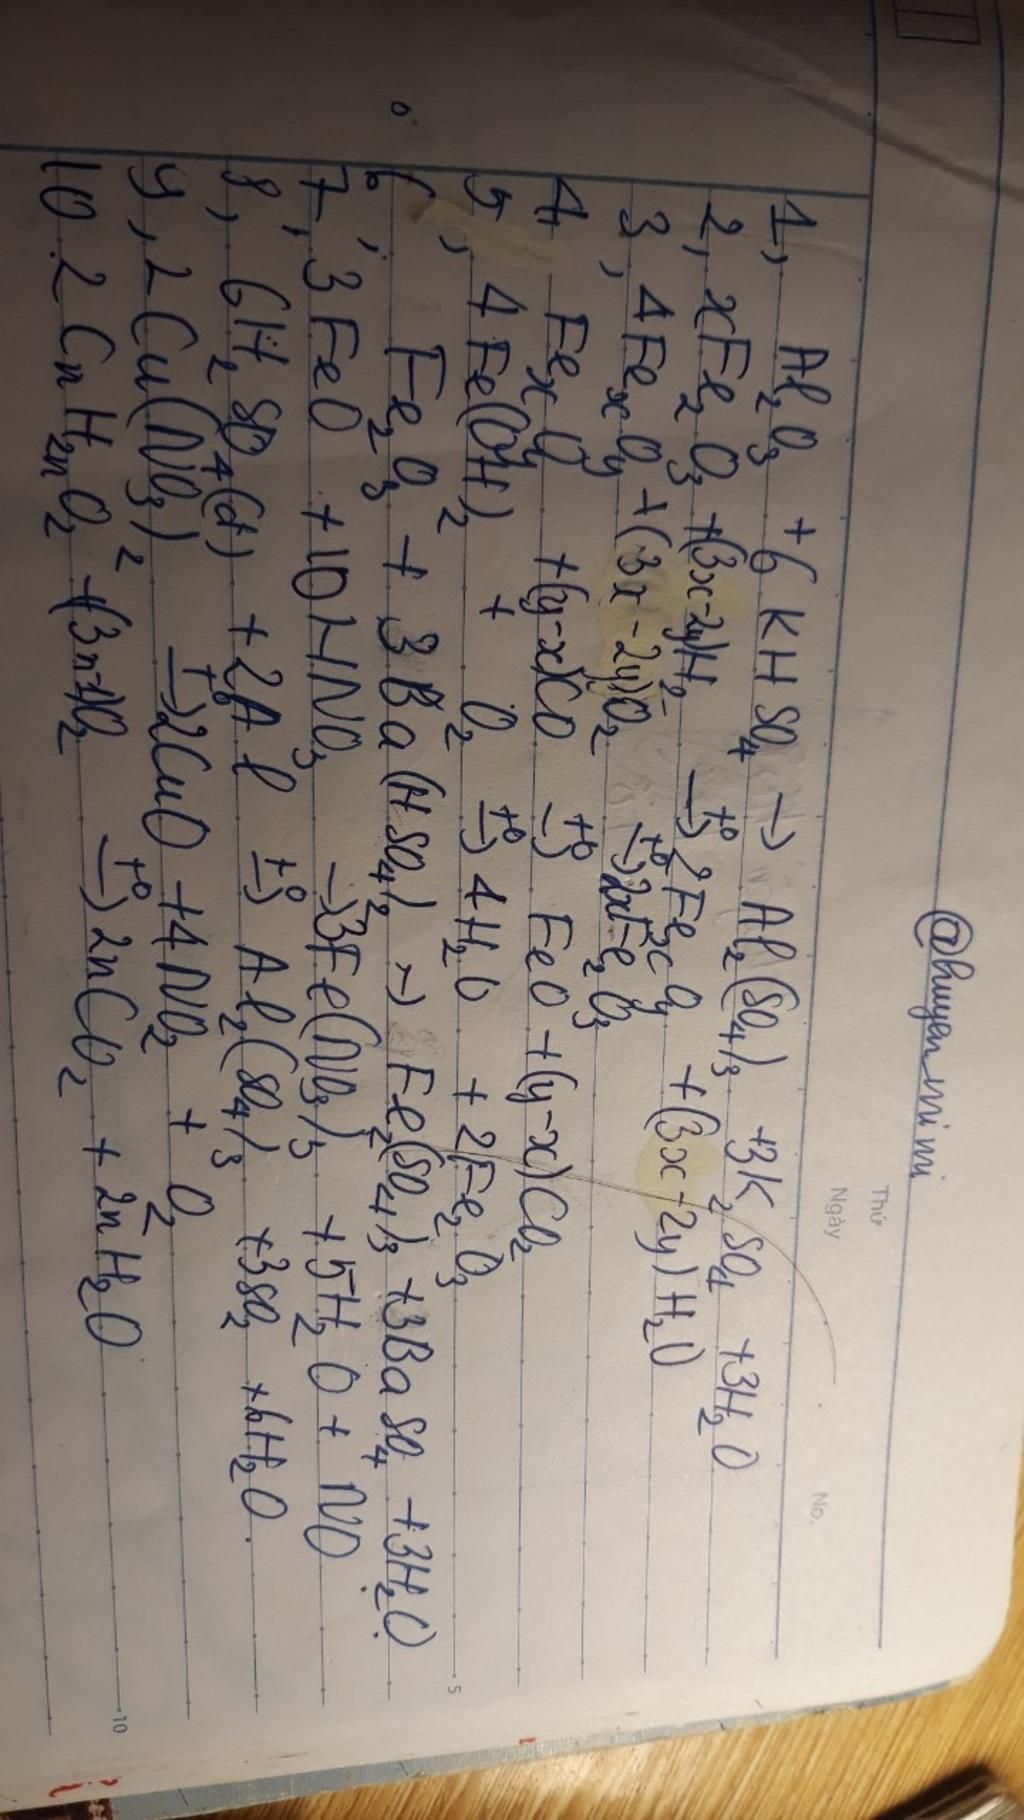 @huyen_mimi
Thứ
Ngày
No.
1, Al₂O₃ + 6 KHSO₄ → Al₂(SO₄)₃ +3K₂SO₄ +3H₂O
2, xFe₂O₃ +(3x-2y)H₂ -t⁰-> 2FexOy + (3x-2y)H₂O
3, 4FexOy +(3x-2y)O₂ -t⁰-> 2xFe₂O₃
4 FexOy +(y-x)CO -t⁰-> FeO +(y-x)CO₂
5, 4Fe(OH)₂ + O₂ -t⁰-> 4H₂O + 2Fe₂O₃
6, Fe₂O₃ + 3Ba(HSO₄)₂ → Fe₂(SO₄)₃ +3BaSO₄ +3H₂O
7, 3FeO +10HNO₃ → 3Fe(NO₃)₃ +5H₂O + NO
8, 6H₂SO₄(đ) +2Al -t⁰-> Al₂(SO₄)₃ +3SO₂ +6H₂O
9, 2Cu(NO₃)₂ -t⁰-> 2CuO +4NO₂ + O₂
10 2CnH₂nO₂ +(3n-2)O₂ -t⁰-> 2nCO₂ + 2nH₂O
5
10